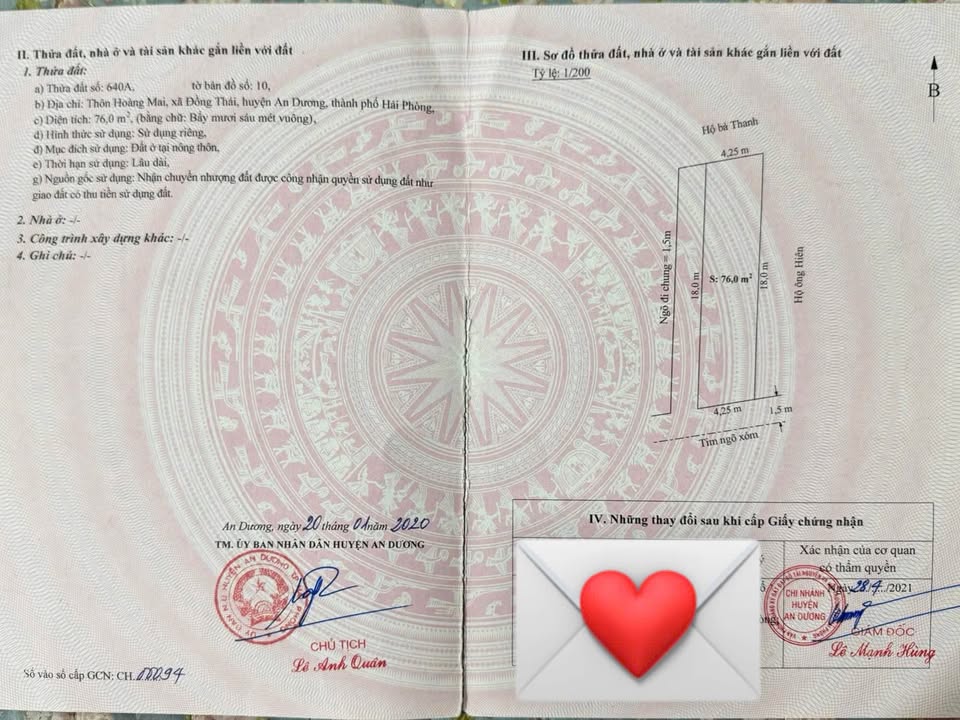 II. Thửa đất, nhà ở và tài sản khác gắn liền với đất
1. Thửa đất:
a) Thửa đất số: 640A, tờ bản đồ số: 10,
b) Địa chỉ: Thôn Hoàng Mai, xã Đồng Thái, huyện An Dương, thành phố Hải Phòng,
c) Diện tích: 76,0 m², (bằng chữ: Bẩy mươi sáu mét vuông),
d) Hình thức sử dụng: Sử dụng riêng,
đ) Mục đích sử dụng: Đất ở tại nông thôn,
e) Thời hạn sử dụng: Lâu dài,
g) Nguồn gốc sử dụng: Nhận chuyển nhượng đất được công nhận quyền sử dụng đất như
giao đất có thu tiền sử dụng đất.
2. Nhà ở: -/-
3. Công trình xây dựng khác: -/-
4. Ghi chú: -/-
An Dương, ngày 20 tháng 01 năm 2020
TM. ỦY BAN NHÂN DÂN HUYỆN AN DƯƠNG
CHỦ TỊCH
Lê Anh Quân
Số vào sổ cấp GCN: CH.00094
III. Sơ đồ thửa đất, nhà ở và tài sản khác gắn liền với đất
Tỷ lệ: 1/200
B
Hộ bà Thanh
4,25 m
Ngõ đi chung = 1,5m
18,0 m
S: 76,0 m²
18,0 m
Hộ ông Hiên
4,25 m
1,5 m
Tim ngõ xóm
IV. Những thay đổi sau khi cấp Giấy chứng nhận
Xác nhận của cơ quan
có thẩm quyền
Ngày 28/4/2021
CHI NHÁNH
HUYỆN
AN DƯƠNG
GIÁM ĐỐC
Lê Mạnh Hùng